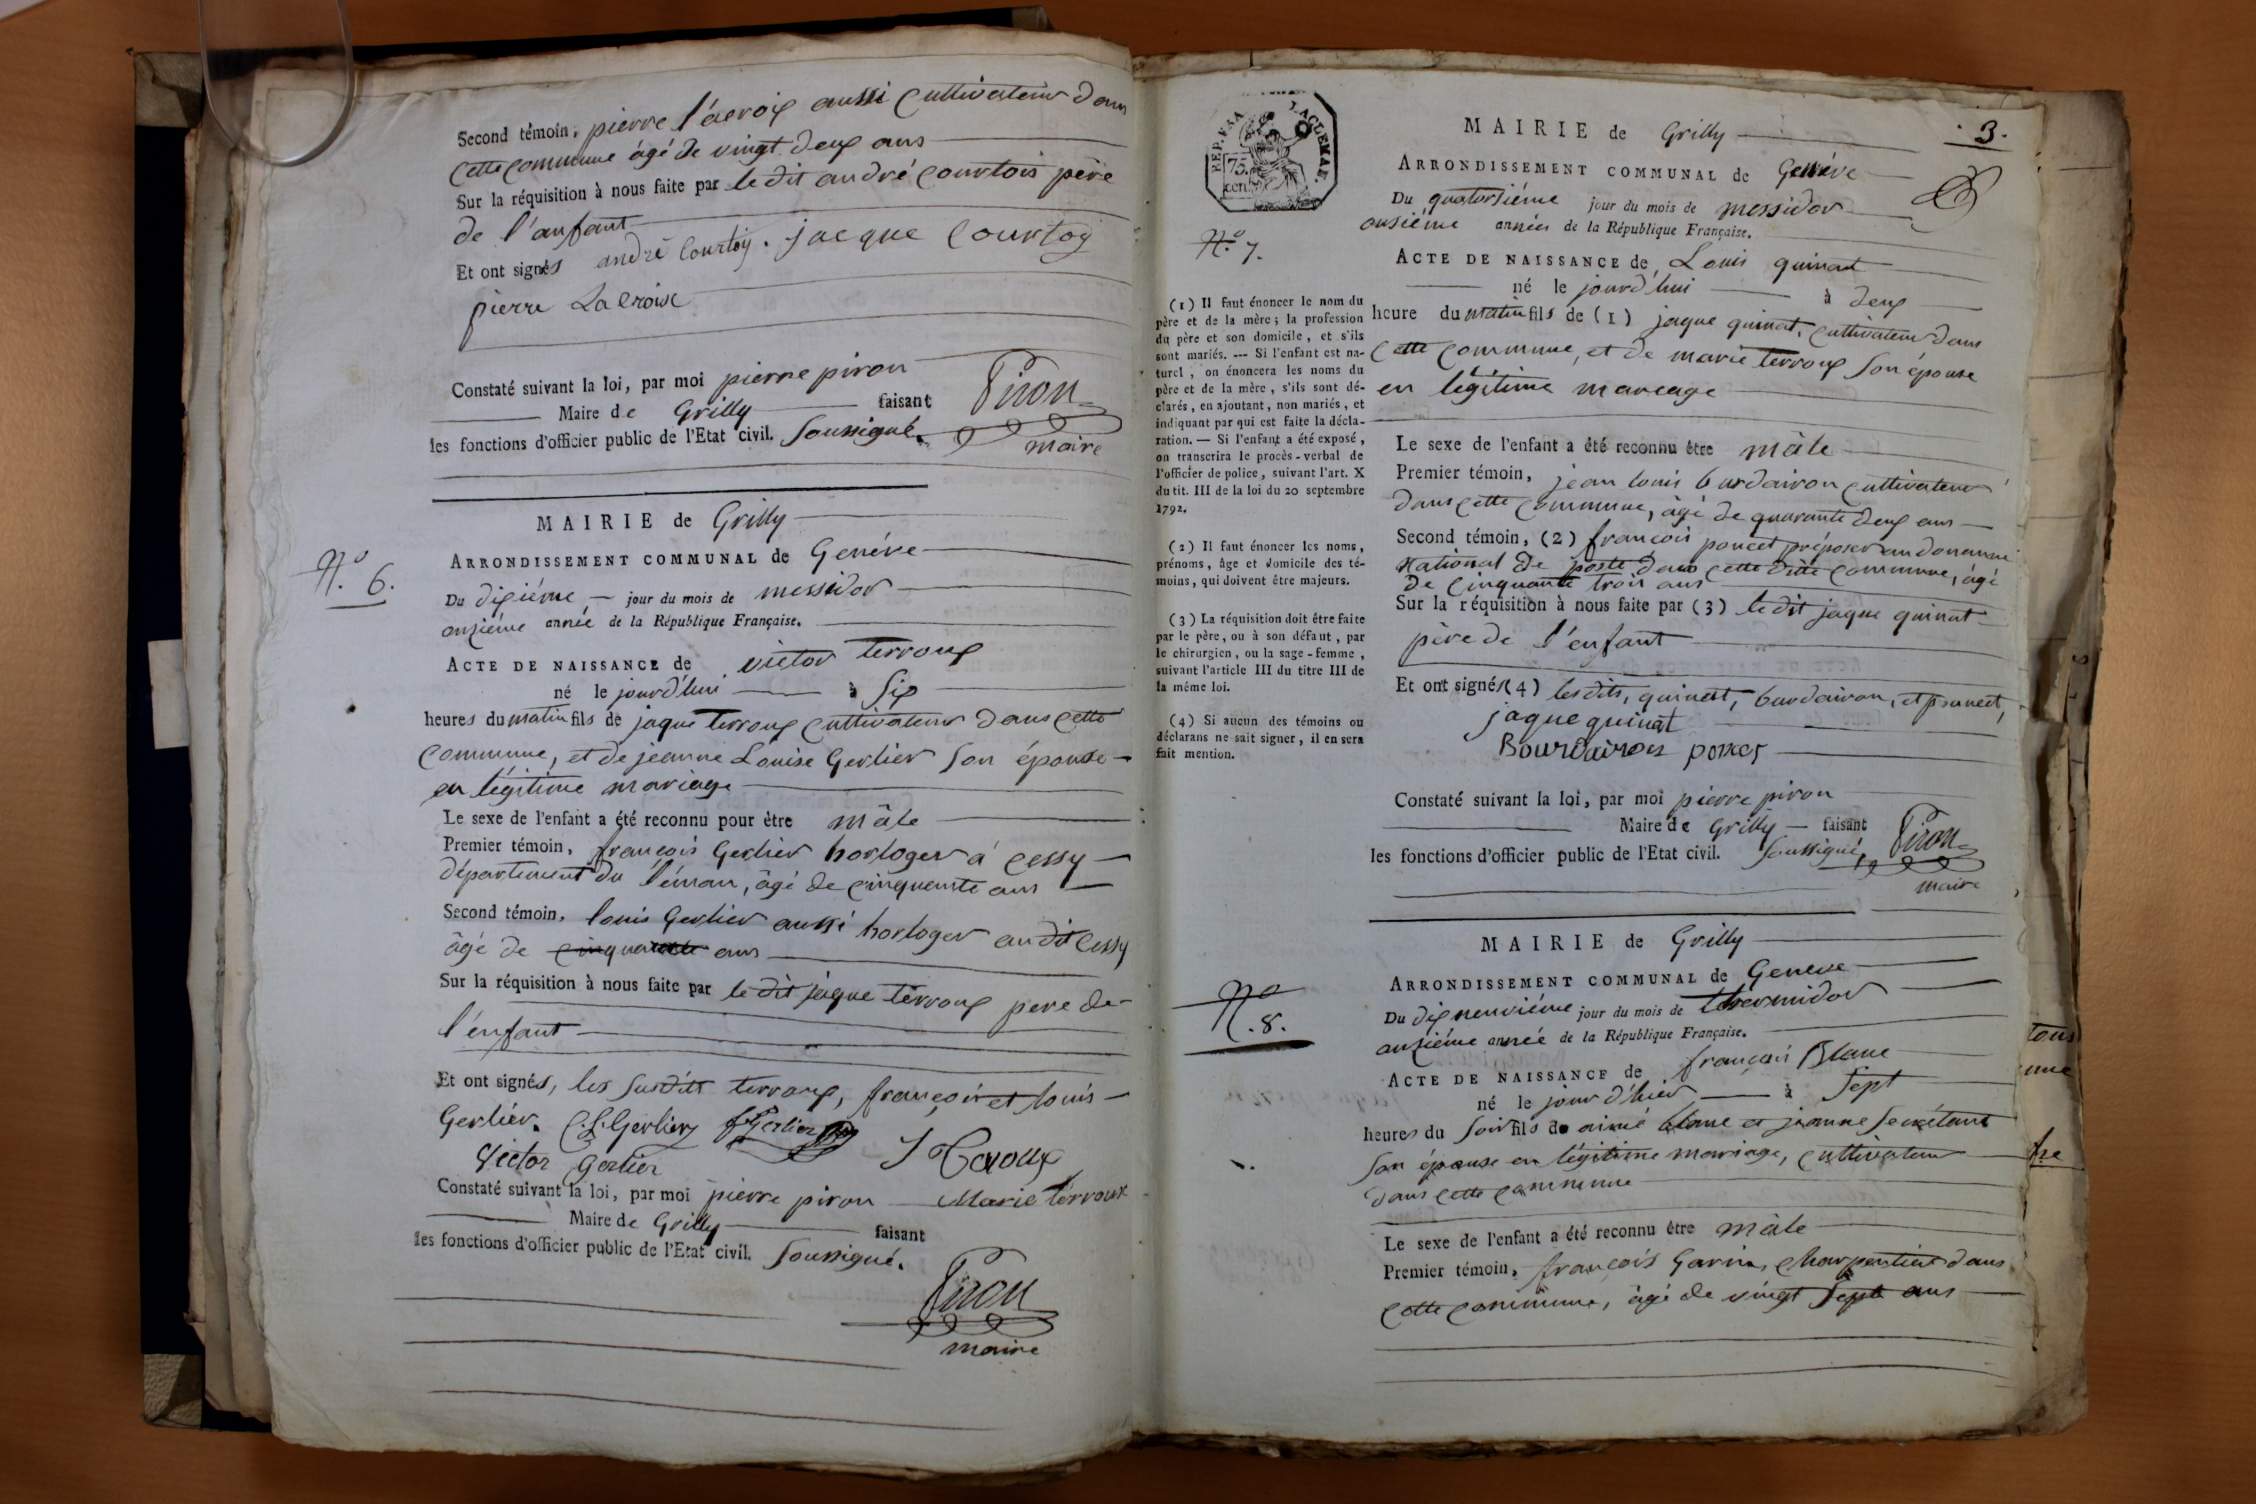 Second témoin, pierre l'acroix aussi Cultivateur dans
Cette commune âgé de vingt deux ans
Sur la réquisition à nous faite par le dit andré Courtois père
de l'anfant
Et ont signés andré Courtoy. jacque Courtoy
pierre Lacroix
Constaté suivant la loi, par moi pierre piron
Maire de Grilly faisant
les fonctions d'officier public de l'Etat civil. Soussigné.
Piron
maire
MAIRIE de Grilly
N.o 6.
ARRONDISSEMENT COMMUNAL de Genéve
Du dixiéme jour du mois de messidor
onziéme année de la République Française.
ACTE DE NAISSANCE de victor terroux
né le jourd'hui à Six
heures du matin fils de jaque terroux Cultivateur dans Cette
Commune, et de jeanne Louise Gerlier Son épouse
en légitime mariage
Le sexe de l'enfant a été reconnu pour être mâle
Premier témoin, françois Gerlier horloger à Cessy
département du l'éman, âgé de Cinquante ans
Second témoin, louis Gerlier aussi horloger au dit Cessy
âgé de cinquante ans
Sur la réquisition à nous faite par le dit jaque terroux pere de
l'enfant
Et ont signés, les Susdits terroux, françois et louis
Gerlier. C. L. Gerlier f Gerlier
Victor Gerlier J Teroux
Marie Terroux
Constaté suivant la loi, par moi pierre piron
Maire de Grilly faisant
les fonctions d'officier public de l'Etat civil. Soussigné.
Piron
maire
REP. FSA
75.
cen
3.
MAIRIE de Grilly
ARRONDISSEMENT COMMUNAL de Genéve
Du quatorsiéme jour du mois de messidor
onsiéme années de la République Française.
N.o 7.
ACTE DE NAISSANCE de Louis quinat
né le jourd'hui à deux
heure du matin fils de (1) jaque quinat, Cultivateur dans
Cette Commune, et de marie terroux Son épouse
en légitime mareage
Le sexe de l'enfant a été reconnu être mâle
Premier témoin, jean louis burdairon Cultivateur
dans Cette Commune, âgé de quarante deux ans
Second témoin, (2) françois poncet préposer au douanne
National de poste dans Cette ditte Commune, âgé
de Cinquante trois ans
Sur la réquisition à nous faite par (3) le dit jaque quinat
père de l'enfant
Et ont signés (4) les dits, quinat, burdairon, et poncet,
jaque quinat
Bourdairon poncet
Constaté suivant la loi, par moi pierre piron
Maire de Grilly faisant
les fonctions d'officier public de l'Etat civil. Soussigné,
Piron
maire
(1) Il faut énoncer le nom du
père et de la mère; la profession
du père et son domicile, et s'ils
sont mariés. --- Si l'enfant est na-
turel, on énoncera les noms du
père et de la mère, s'ils sont dé-
clarés, en ajoutant, non mariés, et
indiquant par qui est faite la décla-
ration. — Si l'enfant a été exposé,
on transcrira le procès-verbal de
l'officier de police, suivant l'art. X
du tit. III de la loi du 20 septembre
1792.
(2) Il faut énoncer les noms,
prénoms, âge et domicile des té-
moins, qui doivent être majeurs.
(3) La réquisition doit être faite
par le père, ou à son défaut, par
le chirurgien, ou la sage-femme,
suivant l'article III du titre III de
la même loi.
(4) Si aucun des témoins ou
déclarans ne sait signer, il en sera
fait mention.
MAIRIE de Grilly
ARRONDISSEMENT COMMUNAL de Geneve
N.o 8.
Du dix neuviéme jour du mois de thermidor
onziéme année de la République Française.
ACTE DE NAISSANCE de françois Blanc
né le jour d'hier à Sept
heures du Soir fils de aimé blanc et jeanne Secrétant
Son épouse en légitime mariage, Cultivateur
dans Cette Commune
Le sexe de l'enfant a été reconnu être mâle
Premier témoin, françois Garin, Charpentier dans
Cette Commune, âgé de vingt Sept ans